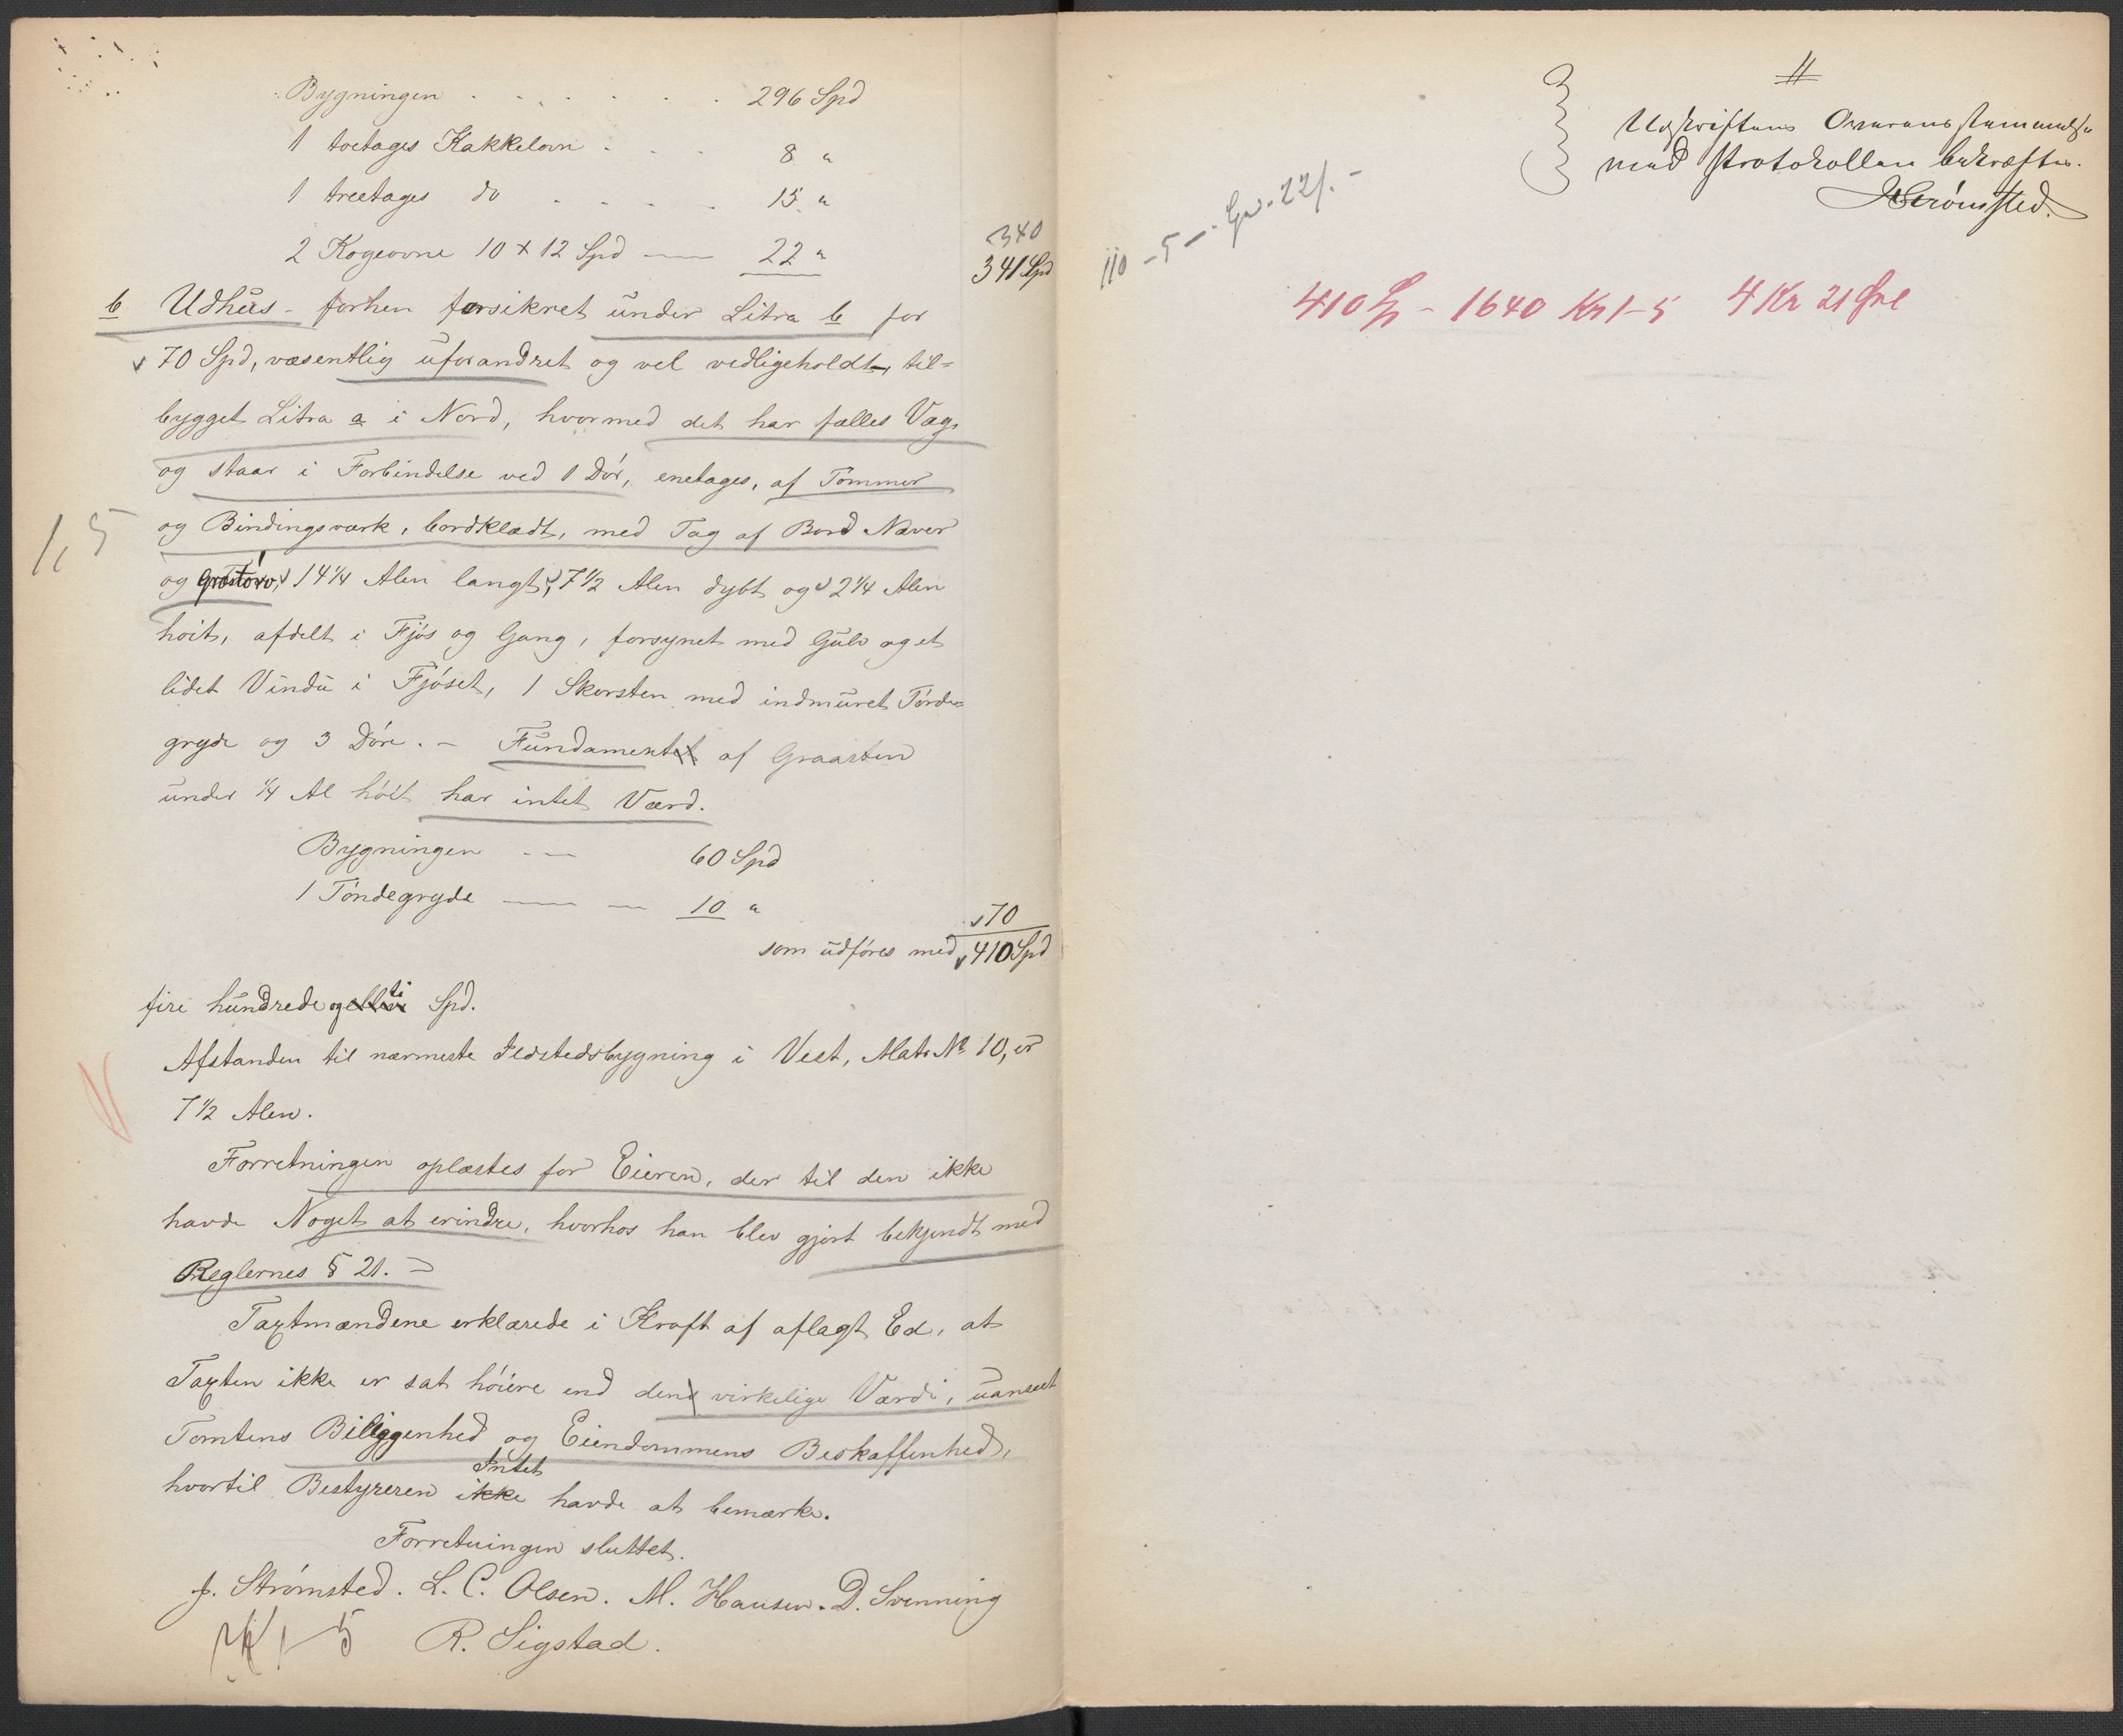 Bygningen . . . . . . . 296 Spd
1 toetages Kakkelovn . . . 8 "
1 treetages do . . . . . 15 "
2 Kogeovne 10 + 12 Spd — 22 "
340
341 Spd
b Udhus - forhen forsikret under Litra b for
70 Spd, væsentlig uforandret og vel vedligeholdt, til-
bygget Litra a i Nord, hvormed det har fælles Væg,
og staar i Forbindelse ved 1 Dör, enetages, af Tømmer
og Bindingsværk, bordklædt, med Tag af Bord Næver
1,5
og Græstörv, 14 1/4 Alen langt, 7 1/2 Alen dybt og 2 1/4 Alen
høit, afdelt i Fjös og Gang, forsynet med Gulv og et
lidet Vindu i Fjöset, 1 Skorsten med indmuret Tönde-
gryde og 3 Döre. — Fundamentet af Graasten
under 1/4 Al höit har intet Værd.
Bygningen — 60 Spd
1 Töndegryde — — 10 "
70
som udföres med 410 Spd
fire hundrede og elleve ti Spd.
Afstanden til nærmeste Ildstedsbygning i Vest, Matr No 10, er
7 1/2 Alen.
Forretningen oplæstes for Eieren, der til den ikke
havde Noget at erindre, hvorhos han blev gjort bekjendt med
Reglernes § 21. —
Taxtmændene erklærede i Kraft af aflagt Ed, at
Taxten ikke er sat höiere end dens virkelige Værdi, uanseet
Tomtens Beliggenhed og Eiendommens Beskaffenhed,
hvortil Bestyreren ikke Intet havde at bemærke.
Forretningen sluttet.
J. Strömsted. L. C. Olsen. M. Hansen. D. Svenning
R. Sigstad.
1-5
Udskriftens Overensstemmelse
med Protokollen bekræftes.
JStrömsted.
110 - 5 -
410 Sp - 1640 Kr 1-5 4 Kr 21 Øre